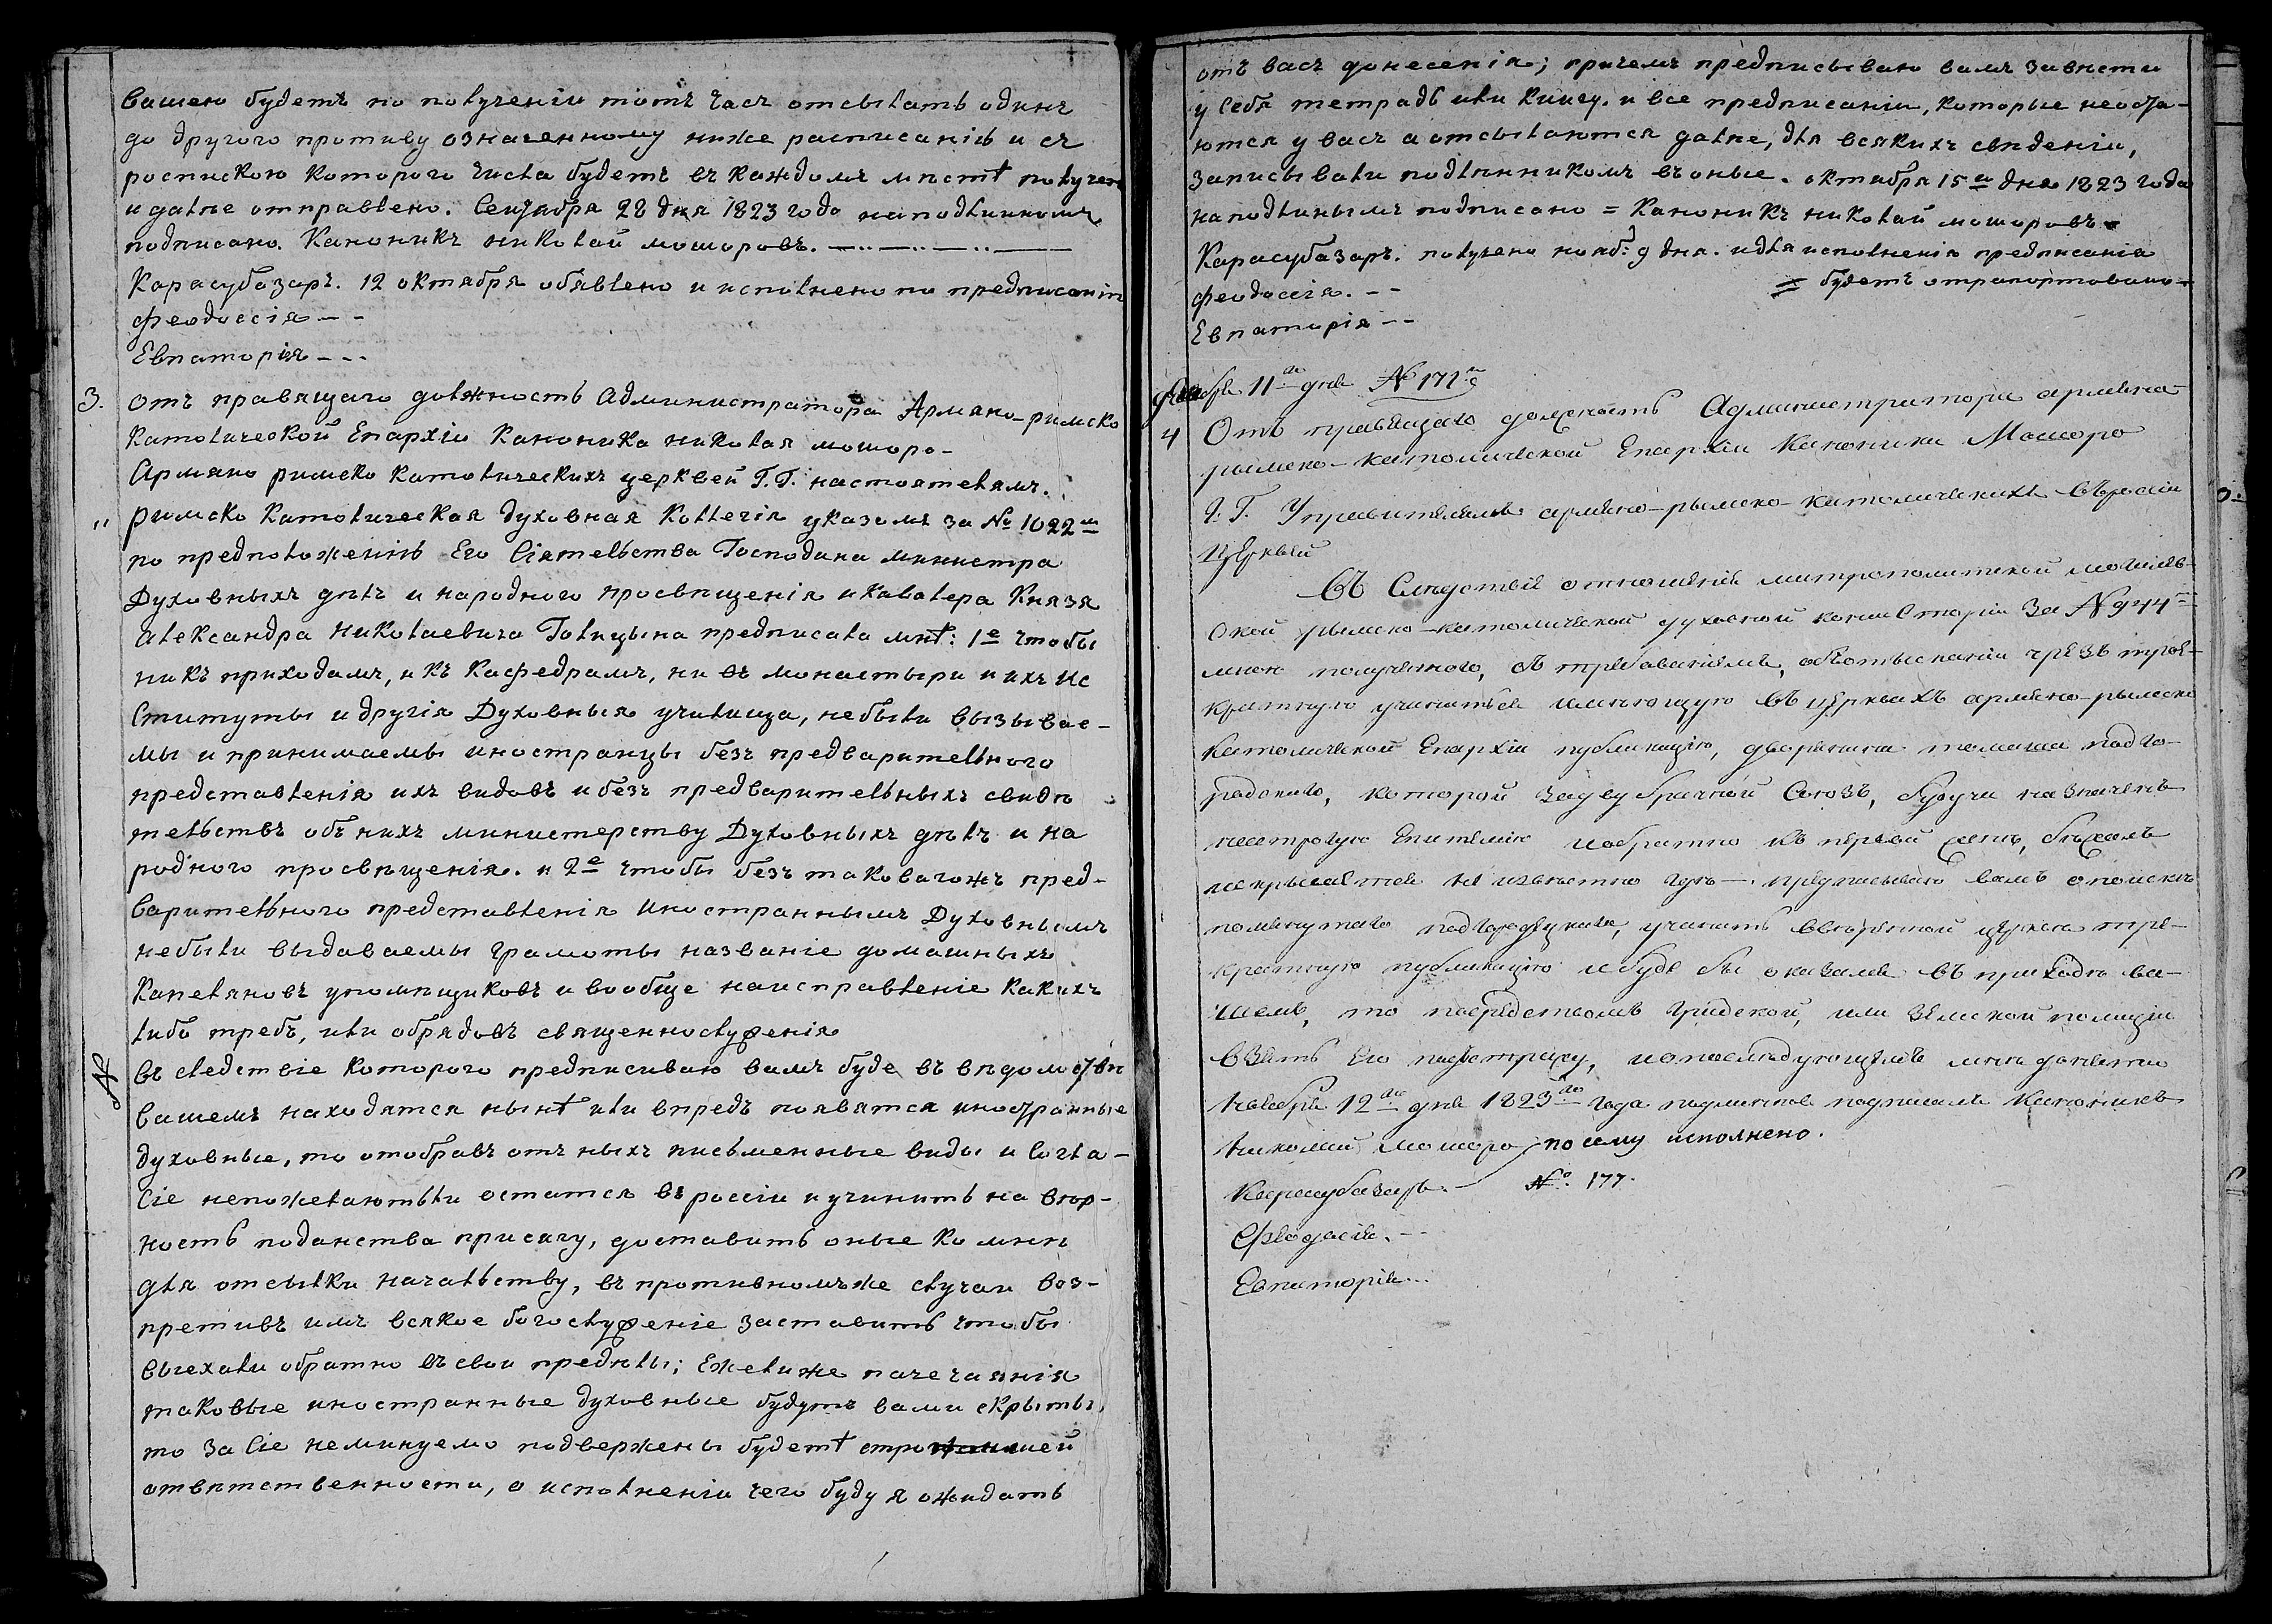 вашею будетъ по полученіи тотъ часъ отсылать одинъ
до другого противу означенному ниже расписанію и съ
роспискою которого числа будетъ въ каждомъ мѣстѣ получен
и далѣе отправлено. Сентября 28 дня 1823 года наподлинномъ
подписано. Каноникъ николай мошоровъ.
Карасубазаръ. 12 октября обявлено и исполнено по предписанію
феодоссія
Евпаторія
3. отъ правящаго должность Администратора Армяно-римско
католической Епархіи Каноника николая мошоро-
Армяно римско католическихъ церквей Г.Г. настоятелямъ.
" римско католическая духовная коллегія указомъ за № 1022 м
по предположенію Его Сіятельства Господина министра
Духовныхъ дѣлъ и народного просвѣщенія икавалера Князя
Александра николаевича Голицына предписала мнѣ: 1е чтобы
никъ приходамъ, и къ кафедрамъ, ни въ монастыри и ихъ ис
ституты и другія Духовныя училища, небыли вызывае-
мы и принимаемы иностранцы безъ предварительного
представленія ихъ видовъ и безъ предварительныхъ свидѣ
тельствъ объ нихъ министерству Духовныхъ дѣлъ и на
родного просвѣщенія. и 2е чтобы безъ таковагожъ пред-
варительного представленія иностраннымъ Духовнымъ
небыли выдаваемы грамоты названіе домашныхъ
капеляновъ упомѣщиковъ и вообще наисправленіе какихъ
либо требъ, или обрядовъ священнослуженія
въ следствіе которого предписиваю вамъ буде въ вѣдомствѣ
вашемъ находятся нынѣ или впредь появятся иностранные
духовные, то отобравъ отъ ныхъ письменные виды и согла-
сіе непожелаютъли остатся въ россіи и учинить на вѣр-
ность поданства присягу, доставить оные ко мнѣ
для отсылки начальству, въ противномъже случаи воз-
претивъ имъ всякое богослуженіе заставить чтобы
выехали обратно въ свои предѣлы; Ежелиже паче чаянія
таковые иностранные духовные будутъ вами скрыты,
то за сіе неминуемо подвержены будетѣ стро шей
отвѣтственности, о исполненіи чего буду я ожидать
отъ васъ донесенія; причемъ предписываю вамъ завести
у себя тетрадь или книгу. и все предписаніи, которые неоста-
ются у васъ а отсылаются далѣе, для всякихъ свѣденіи,
записывали подлинникомъ въ оные. октября 15 м дня 1823 года
наподлинымъ подписано = Каноникъ николай мошоровъ
Карасубазаръ. получено нояб: 9 дня. и для исполненія предписанія
феодоссія. = будетъ отрапортовано
Евпаторія
11го дня № 171
4 Отъ правящаго должность Администратора армяно-
рымско-католической Епархіи Каноника Мошоро
Г. Г. Управителямъ армяно-рымско-католическихъ въ росіи
церквей
Въ Слѣдствіе отношенія митрополитской могилев-
ской рымско-католической духовной консисторіи За № 944
мною полученного, съ требованіемъ, объ отысканіи чрезъ трое-
кратную имѣющую въ церквахъ армяно-рымско
католической Епархіи публикацію, дворянина томаша подго-
родского, которой за брачной Союзъ, будучи назначенъ
Епитемію и обратно къ первой женѣ, бѣжалъ
искрывается неизвѣстно гдѣ — предписываю вамъ опоискѣ
помянутаго учинить ввѣренной церкви тре-
кратную публикацію и буде бы оказался въ приходѣ ва-
шемъ, то посредствомъ градской, или земской полиціи
взять Его мнѣ донести
ноября 12го дня 1823го года подлинное подписалъ Каноникъ
николай мошоро, по сему исполнено.
Карасубазаръ. — №. 177.
Феодосія.
Евпаторія